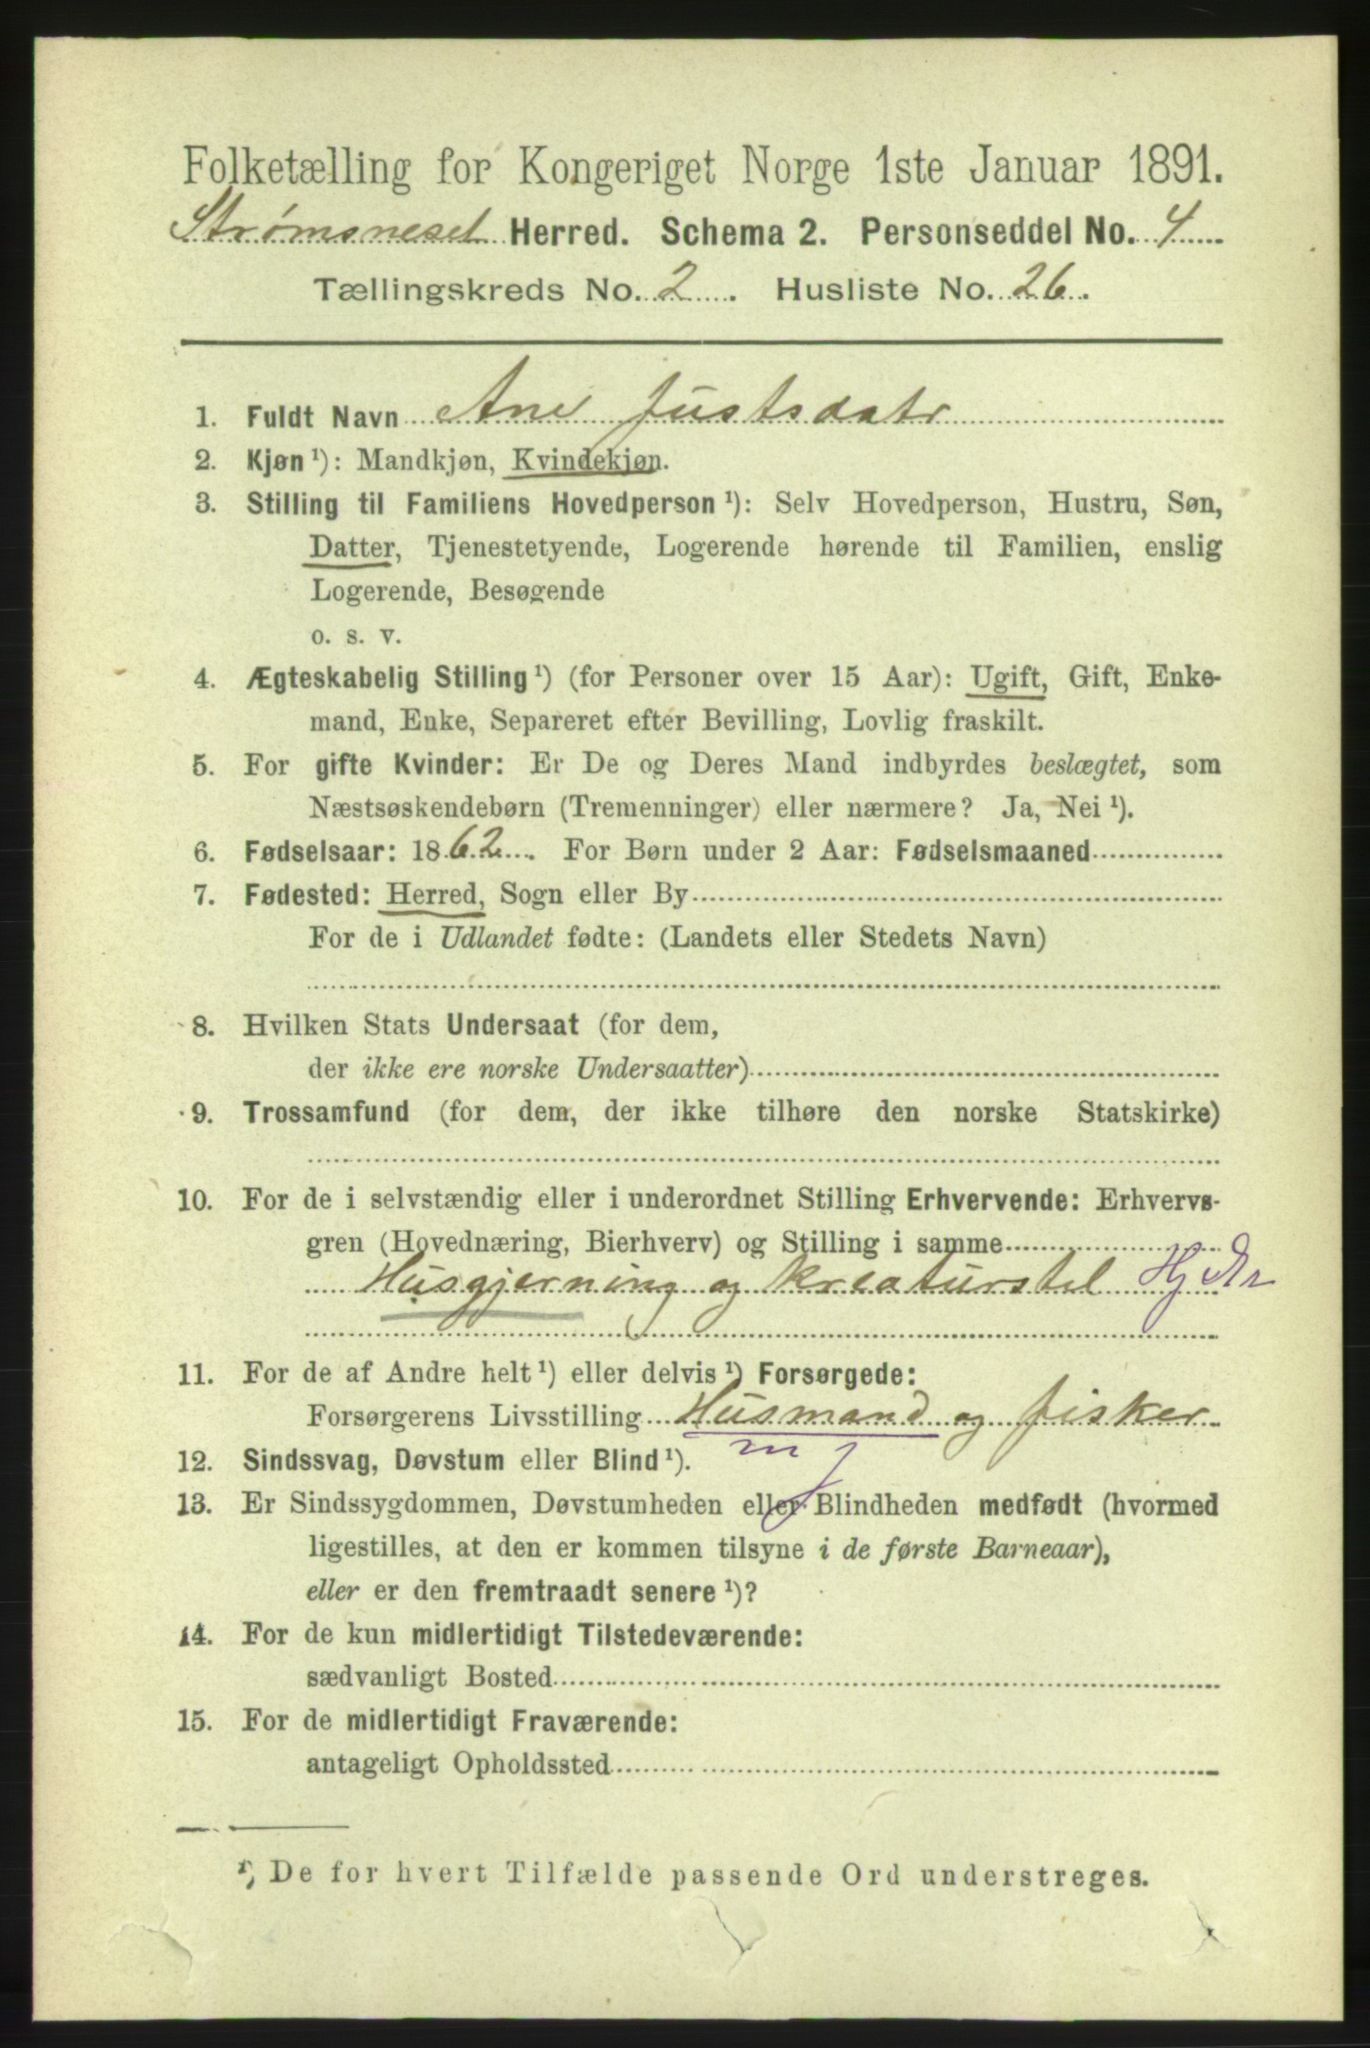 Folketælling for Kongeriget Norge 1ste Januar 1891.
Strømsneset Herred. Schema 2. Personseddel No. 4
Tællingskreds No. 2. Husliste No. 26.
1. Fuldt Navn Ane Justsdatr
2. Kjøn ¹): Mandkjøn, Kvindekjøn.
3. Stilling til Familiens Hovedperson ¹): Selv Hovedperson, Hustru, Søn,
Datter, Tjenestetyende, Logerende hørende til Familien, enslig
Logerende, Besøgende
o. s. v.
4. Ægteskabelig Stilling ¹) (for Personer over 15 Aar): Ugift, Gift, Enke-
mand, Enke, Separeret efter Bevilling, Lovlig fraskilt.
5. For gifte Kvinder: Er De og Deres Mand indbyrdes beslægtet, som
Næstsøskendebørn (Tremenninger) eller nærmere? Ja, Nei ¹).
6. Fødselsaar: 1862. For Børn under 2 Aar: Fødselsmaaned
7. Fødested: Herred, Sogn eller By
For de i Udlandet fødte: (Landets eller Stedets Navn)
8. Hvilken Stats Undersaat (for dem,
der ikke ere norske Undersaatter)
9. Trossamfund (for dem, der ikke tilhøre den norske Statskirke)
10. For de i selvstændig eller i underordnet Stilling Erhvervende: Erhvervs-
gren (Hovednæring, Bierhverv) og Stilling i samme
Husgjerning og kreaturstel Hj
11. For de af Andre helt ¹) eller delvis ¹) Forsørgede:
Forsørgerens Livsstilling Husmand og fisker
m f
12. Sindssvag, Døvstum eller Blind ¹).
13. Er Sindssygdommen, Døvstumheden eller Blindheden medfødt (hvormed
ligestilles, at den er kommen tilsyne i de første Barneaar),
eller er den fremtraadt senere ¹)?
14. For de kun midlertidigt Tilstedeværende:
sædvanligt Bosted
15. For de midlertidigt Fraværende:
antageligt Opholdssted
¹) De for hvert Tilfælde passende Ord understreges.